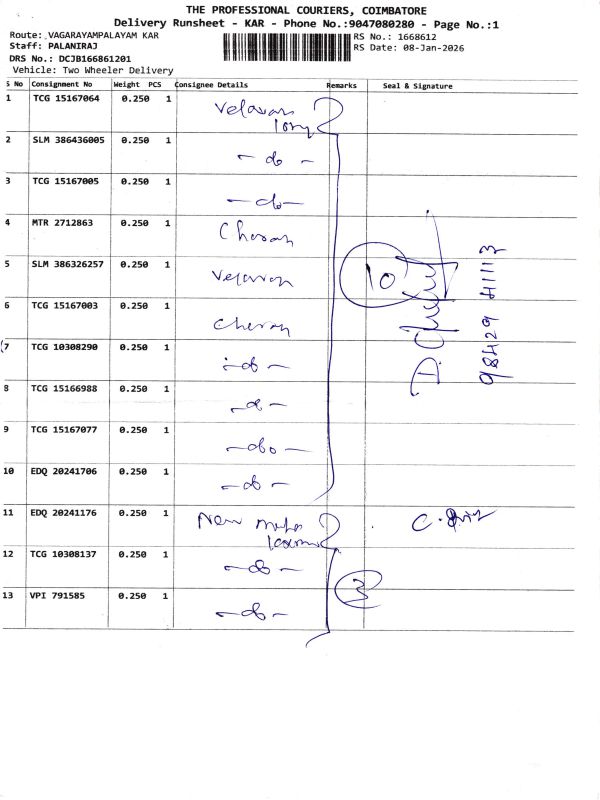 THE PROFESSIONAL COURIERS, COIMBATORE
Delivery Runsheet - KAR - Phone No.:9047080280 - Page No.:1
Route: VAGARAYAMPALAYAM KAR
Staff: PALANIRAJ
DRS No.: DCJB166861201
Vehicle: Two Wheeler Delivery
RS No.: 1668612
RS Date: 08-Jan-2026
S No Consignment No Weight PCS Consignee Details Remarks Seal & Signature
1 TCG 15167064 0.250 1 Velavan
2 SLM 386436005 0.250 1 - do -
3 TCG 15167005 0.250 1 - do -
4 MTR 2712863 0.250 1 Cheran
5 SLM 386326257 0.250 1 Velavan
6 TCG 15167003 0.250 1 Cheran
7 TCG 10308290 0.250 1 - do -
8 TCG 15166988 0.250 1 - do -
9 TCG 15167077 0.250 1 - do -
10 EDQ 20241706 0.250 1 - do -
10
98429 41113
11 EDQ 20241176 0.250 1 New
12 TCG 10308137 0.250 1 - do -
13 VPI 791585 0.250 1 - do -
3